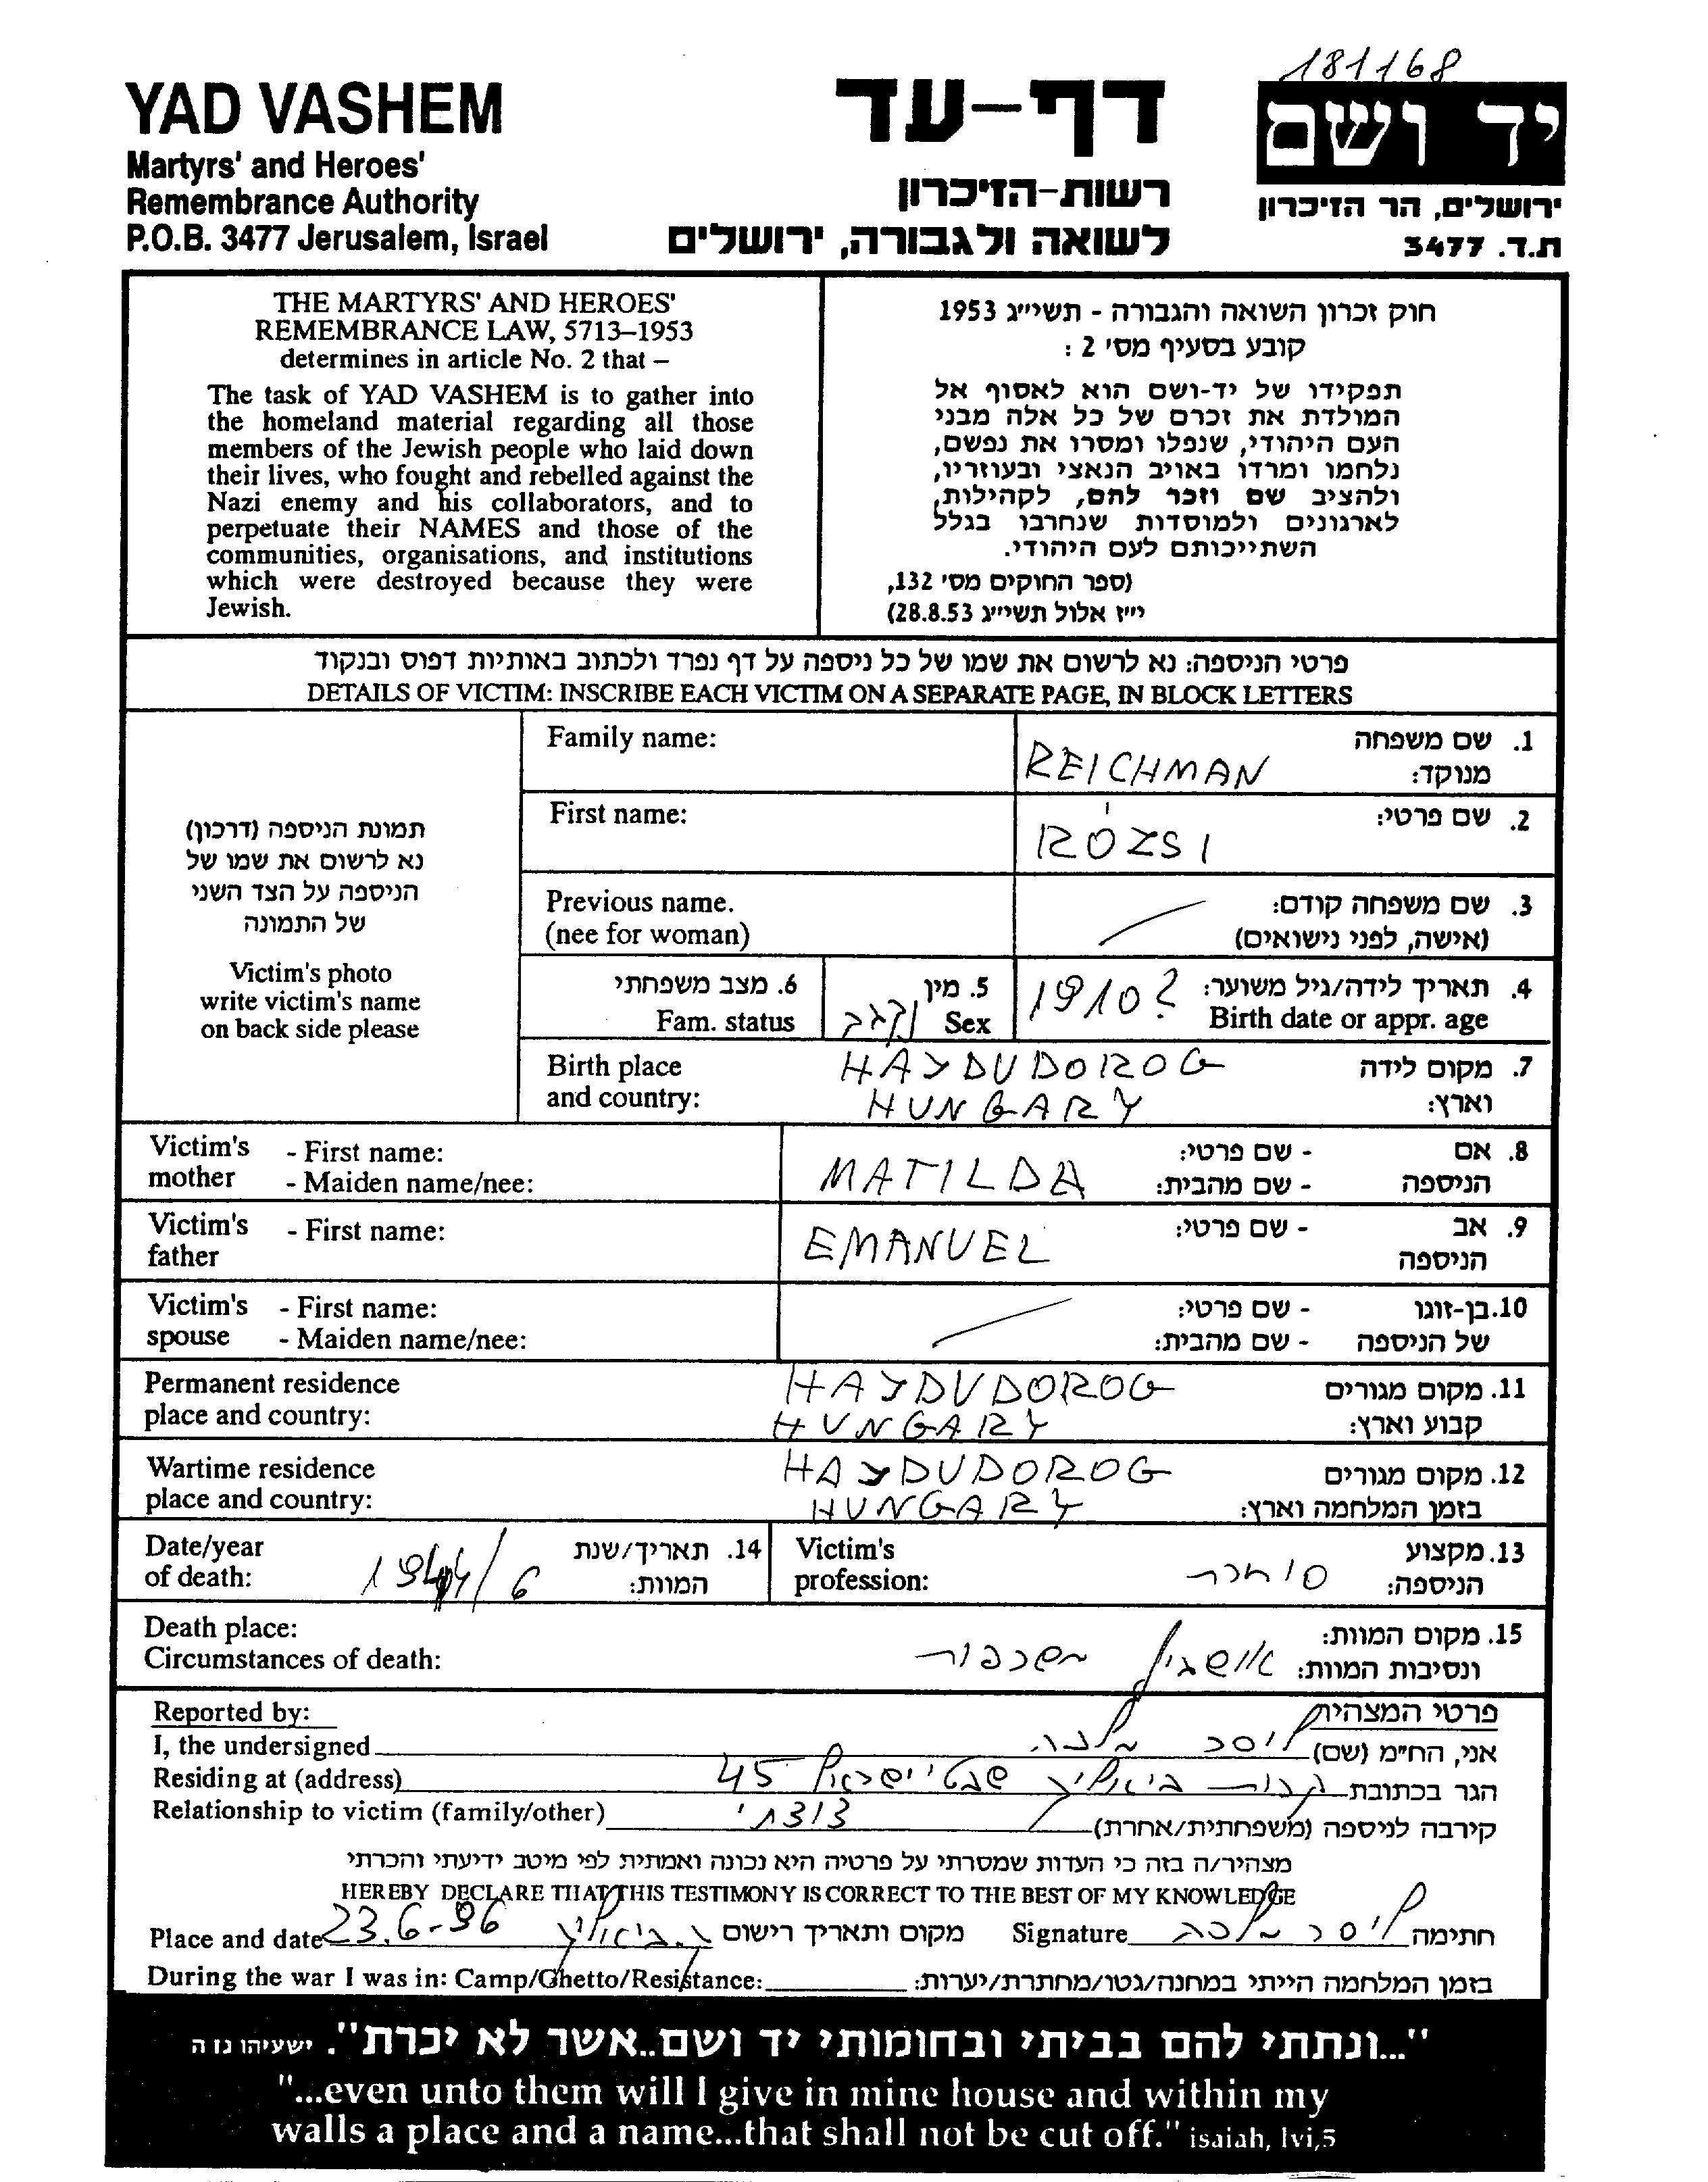 181168
YAD VASHEM
Martyrs' and Heroes'
Remembrance Authority
P.O.B. 3477 Jerusalem, Israel
דף-עד
רשות-הזיכרון
לשואה ולגבורה, ירושלים
יד ושם
ירושלים, הר הזיכרון
ת.ד. 3477
THE MARTYRS' AND HEROES'
REMEMBRANCE LAW, 5713–1953
determines in article No. 2 that –
The task of YAD VASHEM is to gather into
the homeland material regarding all those
members of the Jewish people who laid down
their lives, who fought and rebelled against the
Nazi enemy and his collaborators, and to
perpetuate their NAMES and those of the
communities, organisations, and institutions
which were destroyed because they were
Jewish.
חוק זכרון השואה והגבורה - תשי״ג 1953
קובע בסעיף מס׳ 2 :
תפקידו של יד-ושם הוא לאסוף אל
המולדת את זכרם של כל אלה מבני
העם היהודי, שנפלו ומסרו את נפשם,
נלחמו ומרדו באויב הנאצי ובעוזריו,
ולהציב שם וזכר להם, לקהילות,
לארגונים ולמוסדות שנחרבו בגלל
השתייכותם לעם היהודי.
(ספר החוקים מס׳ 132,
י״ז אלול תשי״ג 28.8.53)
פרטי הניספה: נא לרשום את שמו של כל ניספה על דף נפרד ולכתוב באותיות דפוס ובנקוד
DETAILS OF VICTIM: INSCRIBE EACH VICTIM ON A SEPARATE PAGE, IN BLOCK LETTERS
תמונת הניספה (דרכון)
נא לרשום את שמו של
הניספה על הצד השני
של התמונה
Victim's photo
write victim's name
on back side please
Family name: REICHMAN 1. שם משפחה
מנוקד:
First name: RÓZSI 2. שם פרטי:
Previous name. 3. שם משפחה קודם:
(nee for woman) (אישה, לפני נישואים)
6. מצב משפחתי 5. מין 1910? 4. תאריך לידה/גיל משוער:
Fam. status נקבה Sex Birth date or appr. age
Birth place HAYDUDOROG 7. מקום לידה
and country: HUNGARY וארץ:
Victim's - First name: - שם פרטי: 8. אם
mother - Maiden name/nee: MATILDA - שם מהבית: הניספה
Victim's - First name: EMANUEL - שם פרטי: 9. אב
father הניספה
Victim's - First name: - שם פרטי: 10.בן-זוגו
spouse - Maiden name/nee: - שם מהבית: של הניספה
Permanent residence HAYDUDOROG 11. מקום מגורים
place and country: HUNGARY קבוע וארץ:
Wartime residence HAYDUDOROG 12. מקום מגורים
place and country: HUNGARY בזמן המלחמה וארץ:
Date/year 14. תאריך/שנת Victim's 13.מקצוע
of death: 1944/6 המוות: profession: סוחרת הניספה:
Death place: 15. מקום המוות:
Circumstances of death: אושביץ משרפות ונסיבות המוות:
Reported by: פרטי המצהיר
I, the undersigned אני, הח״מ (שם)
Residing at (address) קרית ביאליק שבטי ישראל 45 הגר בכתובת
Relationship to victim (family/other) קירבה לניספה (משפחתית/אחרת)
מצהיר/ה בזה כי העדות שמסרתי על פרטיה היא נכונה ואמתית לפי מיטב ידיעתי והכרתי
HEREBY DECLARE THAT THIS TESTIMONY IS CORRECT TO THE BEST OF MY KNOWLEDGE
Place and date 23.6-96 ק. ביאליק מקום ותאריך רישום Signature חתימה
During the war I was in: Camp/Ghetto/Resistance: בזמן המלחמה הייתי במחנה/גטו/מחתרת/יערות:
"...ונתתי להם בביתי ובחומותי יד ושם..אשר לא יכרת". ישעיהו נו ה
"...even unto them will I give in mine house and within my
walls a place and a name...that shall not be cut off." isaiah, lvi,5